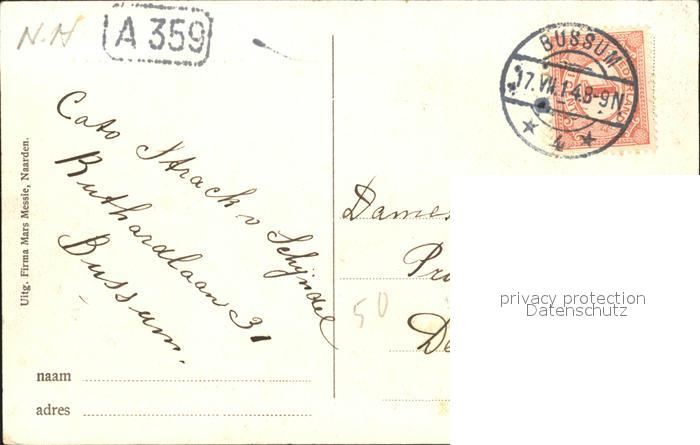 N.H
A 359
BUSSUM
17.VII.14.8-9N
NEDERLAND
Cato Strack v Schijndel
Ruthardlaan 31
Bussum.
Uitg. Firma Mars Messie, Naarden.
Dames
Pr
De
50
privacy protection
Datenschutz
naam
adres